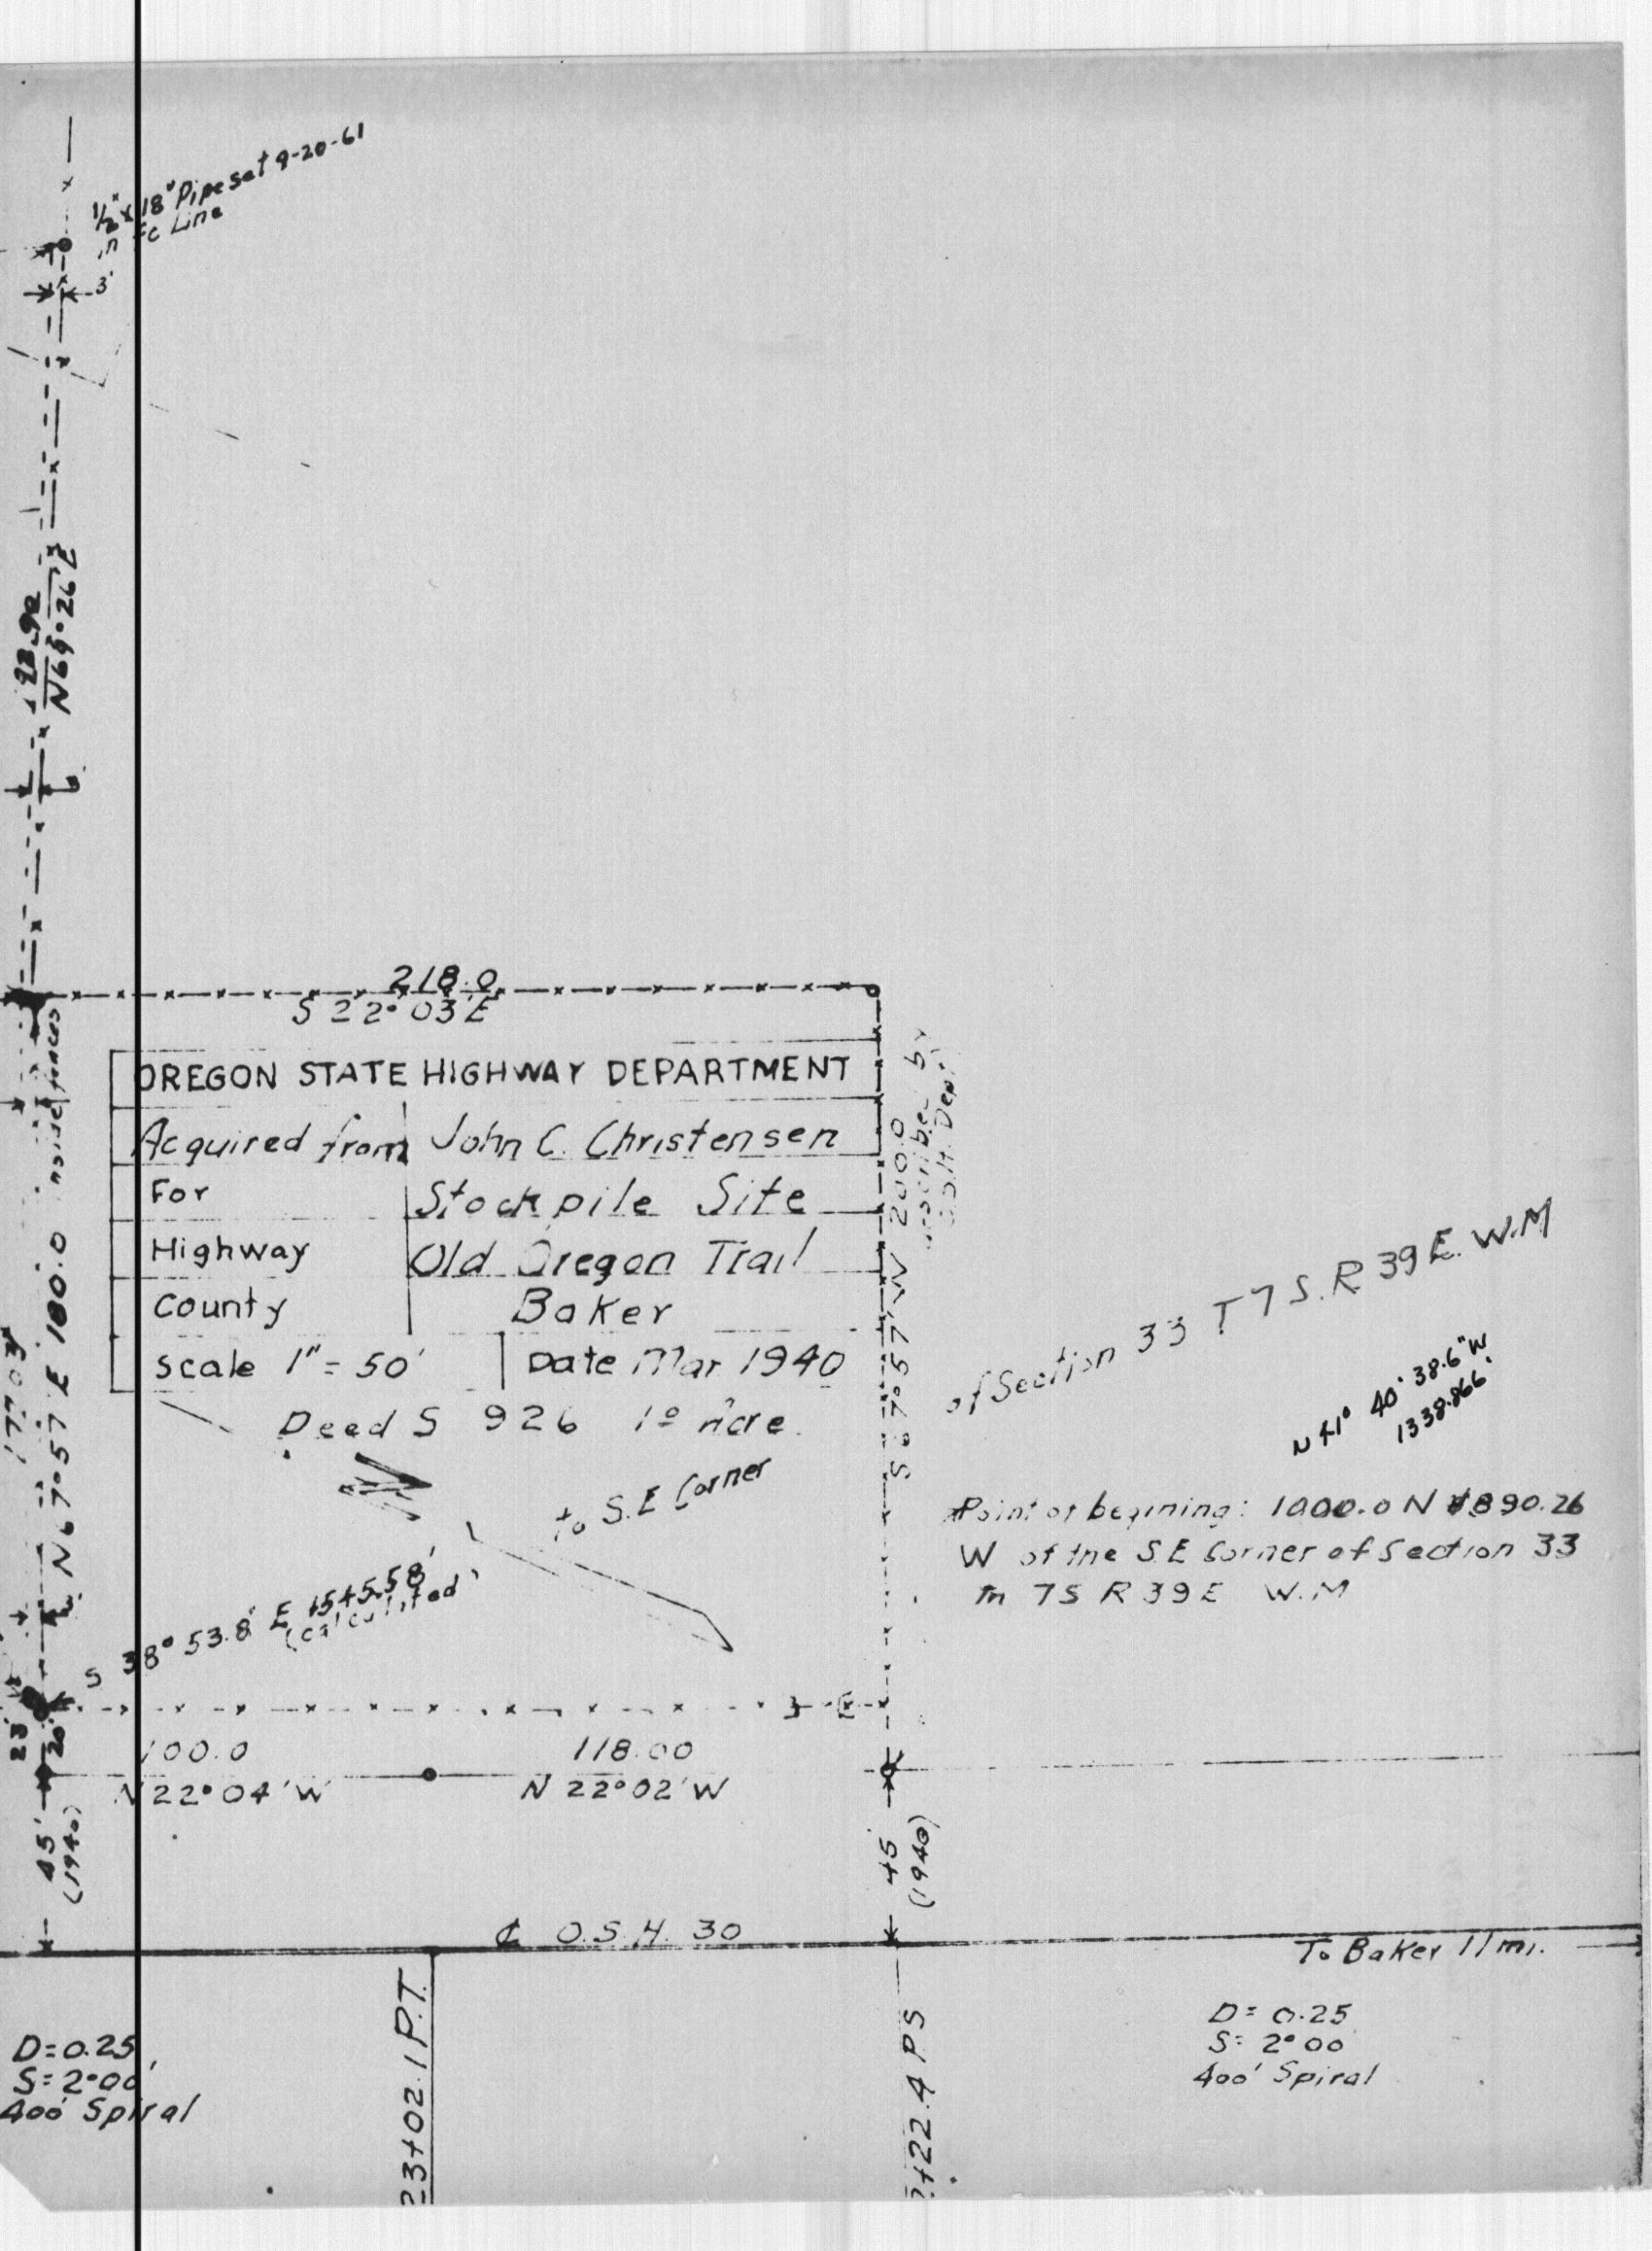 1/2" x 18" Pipe set 9-20-61
in Line
3'
N69°26'E
218.0
S 22° 03' E
OREGON STATE HIGHWAY DEPARTMENT
Acquired from John C. Christensen
For Stockpile Site
Highway Old Oregon Trail
County Baker
Scale 1" = 50' Date Mar 1940
Deed S 926 1.0 Acre.
N 67°57' E 180.0
S 67°57' W 200.0
of Section 33 T 7 S. R 39 E. W.M
N 41° 40' 38.6" W
1338.866'
to S.E Corner
Point of begining: 1000.0 N & 890.26
W of the S.E Corner of Section 33
7S R 39E W.M
S 38° 53.8' E 1545.58'
(calculated)
23'
20'
100.0
N 22° 04' W
118.00
N 22° 02' W
45'
(1940)
45'
(1940)
℄ O.S.H. 30
To Baker 11 mi.
3+02.1 P.T.
+22.4 P.S
D = 0.25
S = 2°00'
400' Spiral
D = 0.25
S = 2°00
400' Spiral